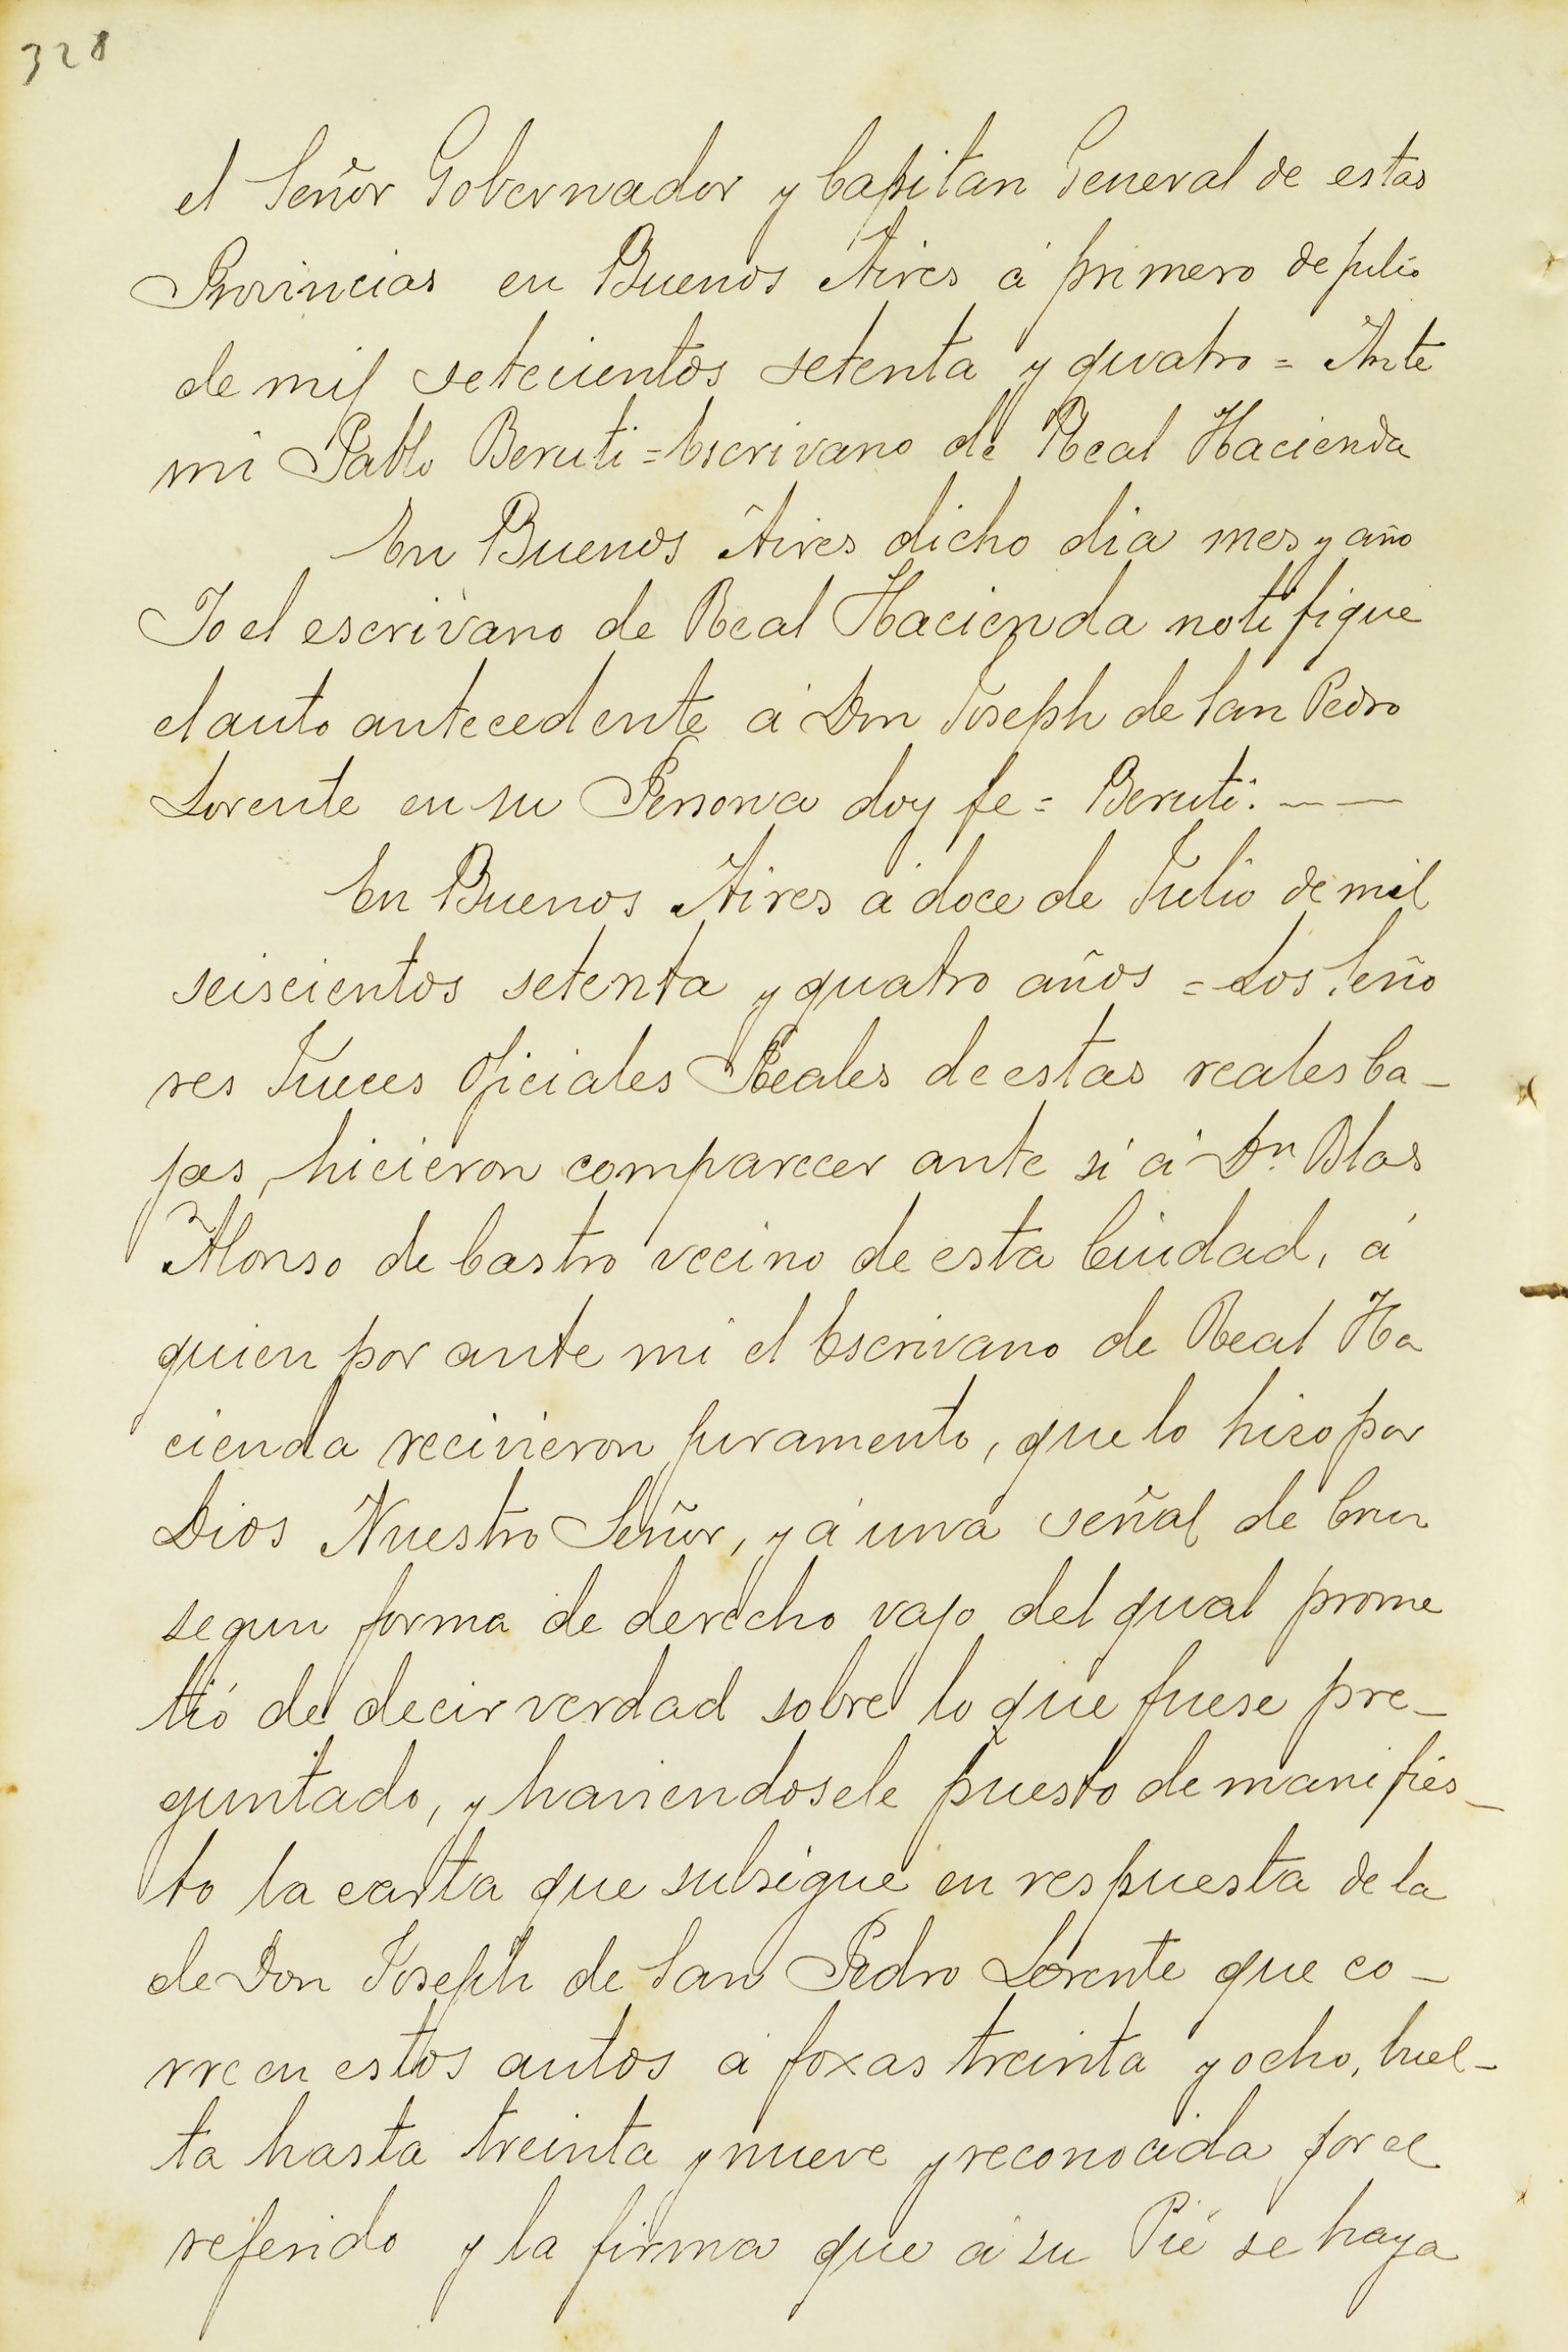 328
el Señor Gobernador y Capitan General de estas
Provincias en Buenos Aires á primero de julio
de mil setecientos setenta y quatro = Ante
mi Pablo Beruti = Escrivano de Real Hacienda
En Buenos Aires dicho dia mes y año
Io el escrivano de Real Hacienda notifique
el auto antecedente á Don Joseph de San Pedro
Lorente en su Persona doy fe = Beruti. — —
En Buenos Aires á doce de Julio de mil
seiscientos setenta y quatro años = Los Seño
res Jueces Oficiales Reales de estas reales Ca-
jas, hicieron comparecer ante sí á Dn. Blas
Alonso de Castro vecino de esta Ciudad, á
quien por ante mi el Escrivano de Real Ha
cienda recivieron juramento, que lo hizo por
Dios Nuestro Señor, y á una señal de Cruz
segun forma de derecho vajo del qual prome
tió de decir verdad sobre lo que fuese pre-
guntado, y haviendosele puesto de manifies-
to la carta que subsigue en respuesta de la
de Don Joseph de San Pedro Lorente que co-
rre en estos autos á foxas treinta y ocho, buel-
ta hasta treinta y nueve y reconocida por el
referido y la firma que á su Pié se haya